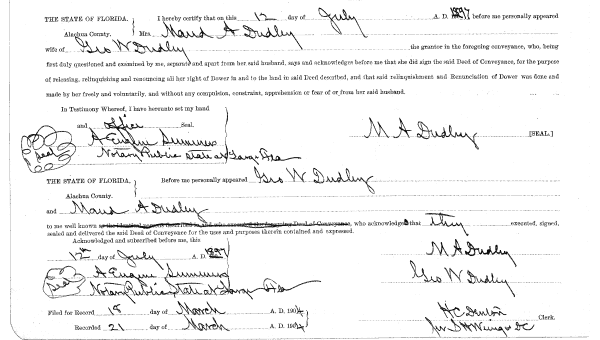 THE STATE OF FLORIDA. } I hereby certify that on this 12 day of July A. D. 1897 before me personally appeared
Alachua County. Mrs. Maud A Dudley
wife of Geo W Dudley the grantor in the foregoing conveyance, who, being
first duly questioned and examined by me, separate and apart from her said husband, says and acknowledges before me that she did sign the said Deed of Conveyance, for the purpose
of releasing, relinquishing and renouncing all her right of Dower in and to the land in said Deed described, and that said relinquishment and Renunciation of Dower was done and
made by her freely and voluntarily, and without any compulsion, constraint, apprehension or fear of or from her said husband.
In Testimony Whereof, I have hereunto set my hand
and office Seal.
Seal A Eugene Summers M A Dudley [SEAL.]
Notary Public State at Large Fla
THE STATE OF FLORIDA. } Before me personally appeared Geo W Dudley
Alachua County.
and Maud A Dudley
to me well known as the identical persons described in and who executed the foregoing Deed of Conveyance, who acknowledged that they executed, signed,
sealed and delivered the said Deed of Conveyance for the uses and purposes therein contained and expressed.
Acknowledged and subscribed before me, this
12th day of July A. D. 1897 M A Dudley
Seal A Eugene Summers Geo W Dudley
Notary Public State at Large Fla
Filed for Record 18 day of March A. D. 1904 H C Denton Clerk.
Recorded 21 day of March A. D. 1904 per S H Wienges DC